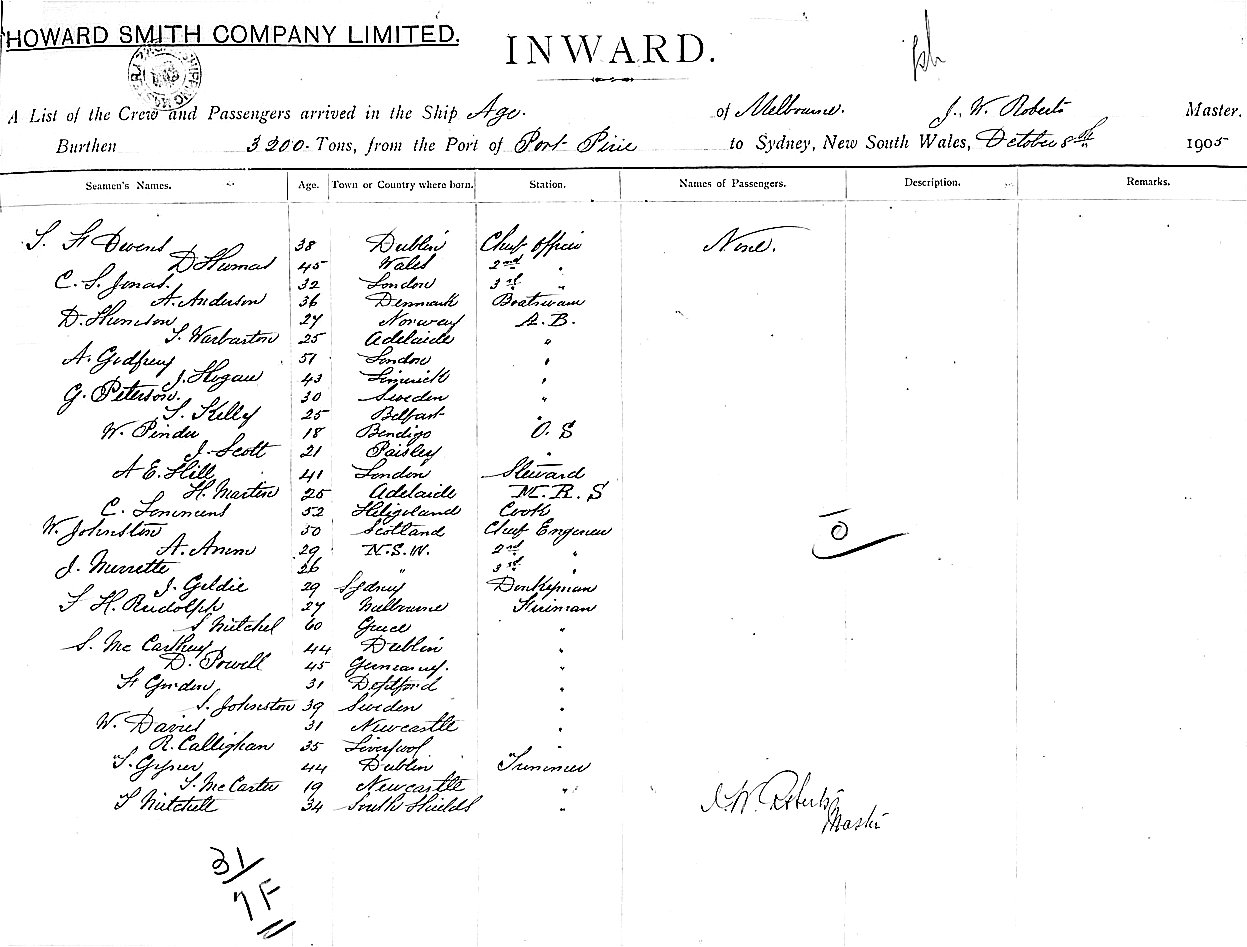 HOWARD SMITH COMPANY LIMITED.
INWARD.
A List of the Crew and Passengers arrived in the Ship Age. of Melbourne. J. W. Roberts Master.
Burthen 3200 Tons, from the Port of Port Pirie to Sydney, New South Wales, October 8th 1905
Seamen's Names. Age. Town or Country where born. Station. Names of Passengers. Description. Remarks.
Owens 38 Dublin Chief Officer None.
D 45 Wales 2nd "
C. S. Jonas. 32 London 3rd "
A. Anderson 36 Denmark Boatswain
D. 27 Norway A. B.
Warbarton 25 Adelaide "
A. Godfrey 51 London "
J. Hogan 43 Limerick "
G. Peterson. 30 Sweden "
Kelly 25 Belfast "
W. Pinder 18 Bendigo O. S
J. Scott 21 Paisley "
A E. Hill 41 London Steward
H. Martin 25 Adelaide M. R. S
C. 52 Heligoland Cook
W. Johnston 50 Scotland Chief Engineer
A. 29 N.S.W. 2nd "
J. 26 " 3rd "
J. Geldie 29 Sydney Donkeyman
H. Rudolph 27 Melbourne Fireman
Mitchel 60 Greece "
Mc Carthy 44 Dublin "
D. Powell 45 Germany. "
Gordon 31 Deptford "
Johnston 39 Sweden "
W. Davies 31 Newcastle "
R. Callighan 35 Liverpool "
44 Dublin Trimmer
Mc Carter 19 Newcastle "
Mitchell 34 South Shields "
J. W. Roberts
Master
31/
7F